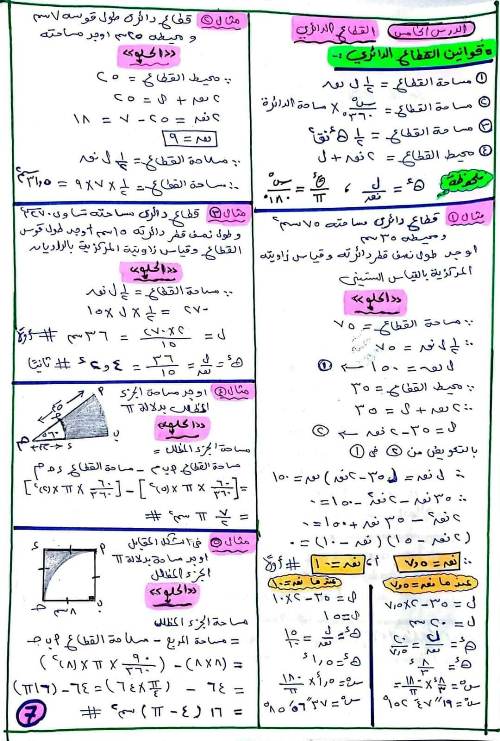 الدرس الخامس القطاع الدائري
* قوانين القطاع الدائري :-
① مساحة القطاع = ½ ل نق
② مساحة القطاع = س°/٣٦٠° × مساحة الدائرة
③ مساحة القطاع = ½ هـ^ء نق²
④ محيط القطاع = ٢نق + ل
ملحوظة هـ^ء = ل/نق ، هـ^ء/π = س°/١٨٠°
مثال ① قطاع دائرى مساحته ٧٥ سم²
و محيطه ٣٥ سم
أوجد طول نصف قطر دائرته و قياس زاويته
المركزية بالقياس الستينى
«الحلو»
∵ مساحة القطاع = ٧٥
∴ ½ ل نق = ٧٥
ل نق = ١٥٠ ← ①
∵ محيط القطاع = ٣٥
∴ ٢نق + ل = ٣٥
ل = ٣٥ - ٢نق ← ②
بالتعويض من ② فى ①
∴ (٣٥ - ٢نق) نق = ١٥٠
∴ ٣٥نق - ٢نق² - ١٥٠ = ٠
٢نق² - ٣٥نق + ١٥٠ = ٠
(٢نق - ١٥) (نق - ١٠) = ٠
∴ نق = ٧٫٥ أ، نق = ١٠ # أولاً
عندما نق = ٧٫٥
ل = ٣٥ - ٢×٧٫٥
ل = ٢٠ سم
هـ^ء = ل/نق = ٢٠/٧٫٥
هـ^ء = ٨/٣
س° = ٨/٣ × ١٨٠/π
س° = ١٩ً ٤٧َ ١٥٢°
عندما نق = ١٠
ل = ٣٥ - ٢×١٠
ل = ١٥
هـ^ء = ل/نق = ١٥/١٠
هـ^ء = ١٫٥^ء
س° = ١٫٥ × ١٨٠/π
س° = ٣٧ً ٥٦َ ٨٥°
مثال ② قطاع دائرى طول قوسه ٧سم
و محيطه ٢٥سم اوجد مساحته
«الحلو»
∵ محيط القطاع = ٢٥
٢نق + ل = ٢٥
٢نق = ٢٥ - ٧ = ١٨
نق = ٩
∵ مساحة القطاع = ½ ل نق
∴ مساحة القطاع = ½ × ٧ × ٩ = ٣١٫٥ سم²
مثال ③ قطاع دائرى مساحته تساوى ٢٧٠سم²
و طول نصف قطر دائرته ١٥سم أوجد طول قوس
القطاع و قياس زاويته المركزية بالراديان
«الحلو»
∵ مساحة القطاع = ½ ل نق
٢٧٠ = ½ × ل × ١٥
ل = ٢×٢٧٠/١٥ = ٣٦ سم # أولاً
هـ^ء = ل/نق = ٣٦/١٥ = ٢٫٤^ء # ثانياً
مثال ④ اوجد مساحة الجزء
المظلل بدلالة π
«الحلو»
مساحة الجزء المظلل =
مساحة القطاع م ب - مساحة القطاع
= [٦٠/٣٦٠ × π × (٥)²] - [٦٠/٣٦٠ × π × (٢)²]
= ٧/٢ π سم² #
مثال ⑤ فى الشكل المقابل
اوجد مساحة بدلالة π
الجزء المظلل
«الحلو»
٨سم
مساحة الجزء المظلل
= مساحة المربع - مساحة القطاع أ ب جـ
= (٨×٨) - (٩٠/٣٦٠ × π × (٨)²)
= ٦٤ - (π/٤ × ٦٤) = ٦٤ - (١٦π)
= ١٦ (٤ - π) سم² #
7